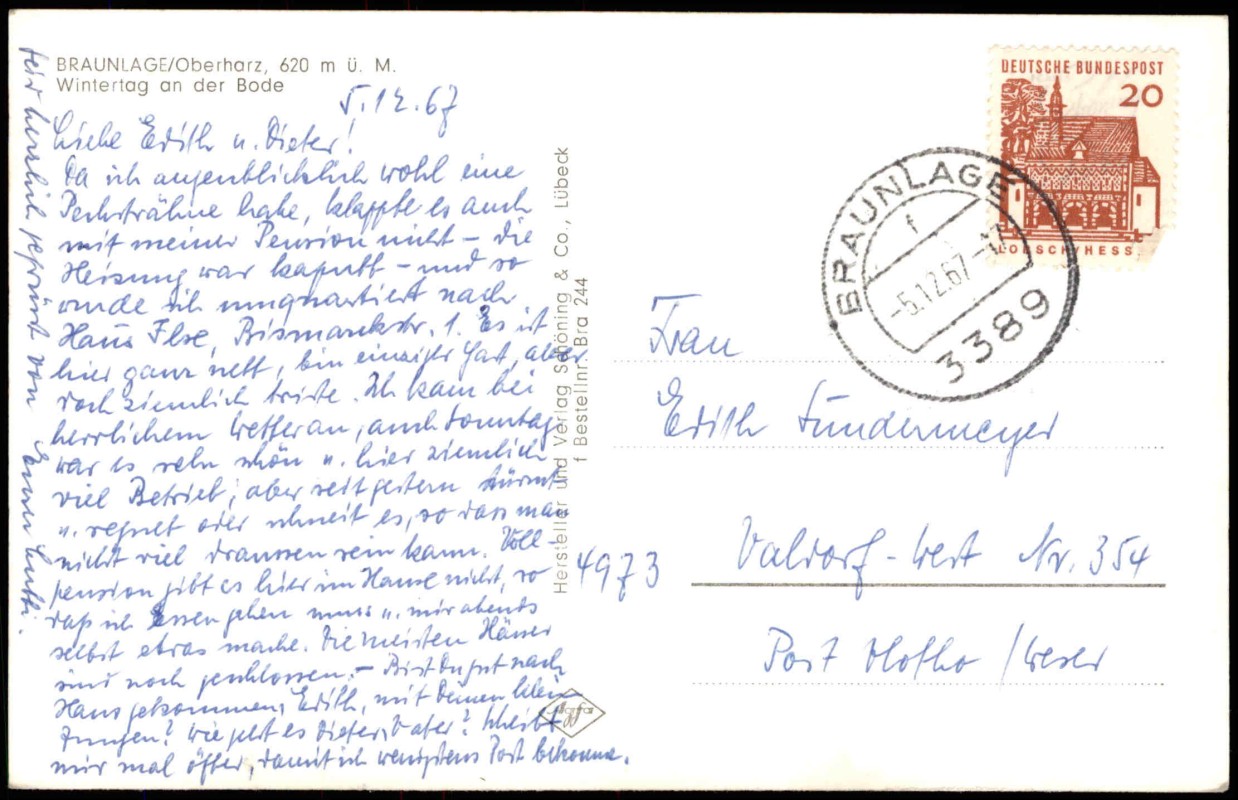 BRAUNLAGE/Oberharz, 620 m ü. M.
Wintertag an der Bode
5.12.67
Liebe Edith u. Dieter!
Da ich augenblicklich wohl eine
Pechsträhne habe, klappte es auch
mit meiner Pension nicht – die
Heizung war kaputt – und so
wurde ich umquartiert nach
Haus Ilse, Bismarckstr. 1. Es ist
hier ganz nett, bin einziger Gast, aber
doch ziemlich triste. Ich kam bei
herrlichem Wetter an, auch Sonntag
war es sehr schön u. hier ziemlich
viel Betrieb, aber seit gestern stürmt
u. regnet oder schneit es, so dass man
nicht viel draussen sein kann. Voll-
pension gibt es hier im Hause nicht, so
daß ich Essen gehen muss u. mir abends
selbst etwas mache. Die meisten Häuser
sind noch geschlossen. – Bist Du gut nach
Haus gekommen, Edith, mit Deinen
Jungen? Wie geht es Dieter, Vater? Schreibt
mir mal öfter, damit ich wenigstens Post bekomme.
Seid herzlich gegrüßt von Eurer
Hersteller und Verlag Schöning & Co., Lübeck
f Bestellnr. Bra 244
Agfa
DEUTSCHE BUNDESPOST
20
LORSCH/HESS
BRAUNLAGE
f
-5.12.67-17
3389
Frau
Edith Sundermeyer
4973 Valdorf-West Nr. 354
Post Vlotho/Weser